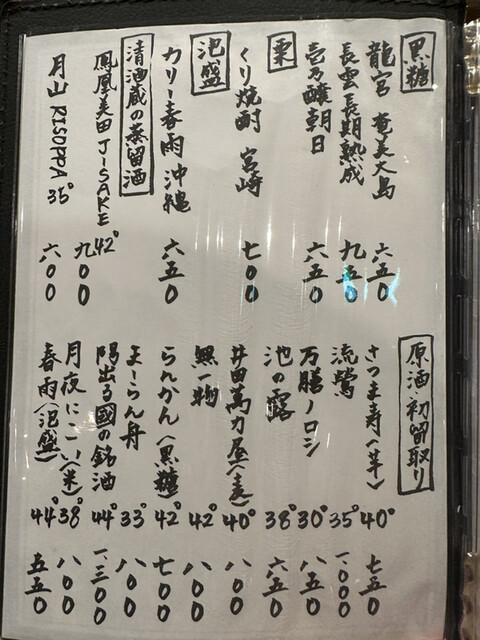 黒糖
龍宮 奄美大島 六五0
長雲長期熟成 九五0
壱乃醸朝日 六五0
栗
くり焼酎 宮崎 七00
泡盛
カリー春雨 沖縄 六五0
清酒蔵の蒸留酒
鳳凰美田 J-SAKE 42° 九00
月山 RISOPPA 35° 六00
原酒、初留取り
さつま寿(芋) 40° 七五0
流鶯 35° 一、000
万膳ノロシ 30° 八五0
池の露 38° 六五0
井田萬力屋(麦) 40° 八00
無一物 42° 八00
らんかん(黒糖) 42° 七00
よーらん舟 33° 八00
陽出る國の銘酒 44° 一、三00
月夜にこい(米) 38° 八00
春雨(泡盛) 44° 五五0